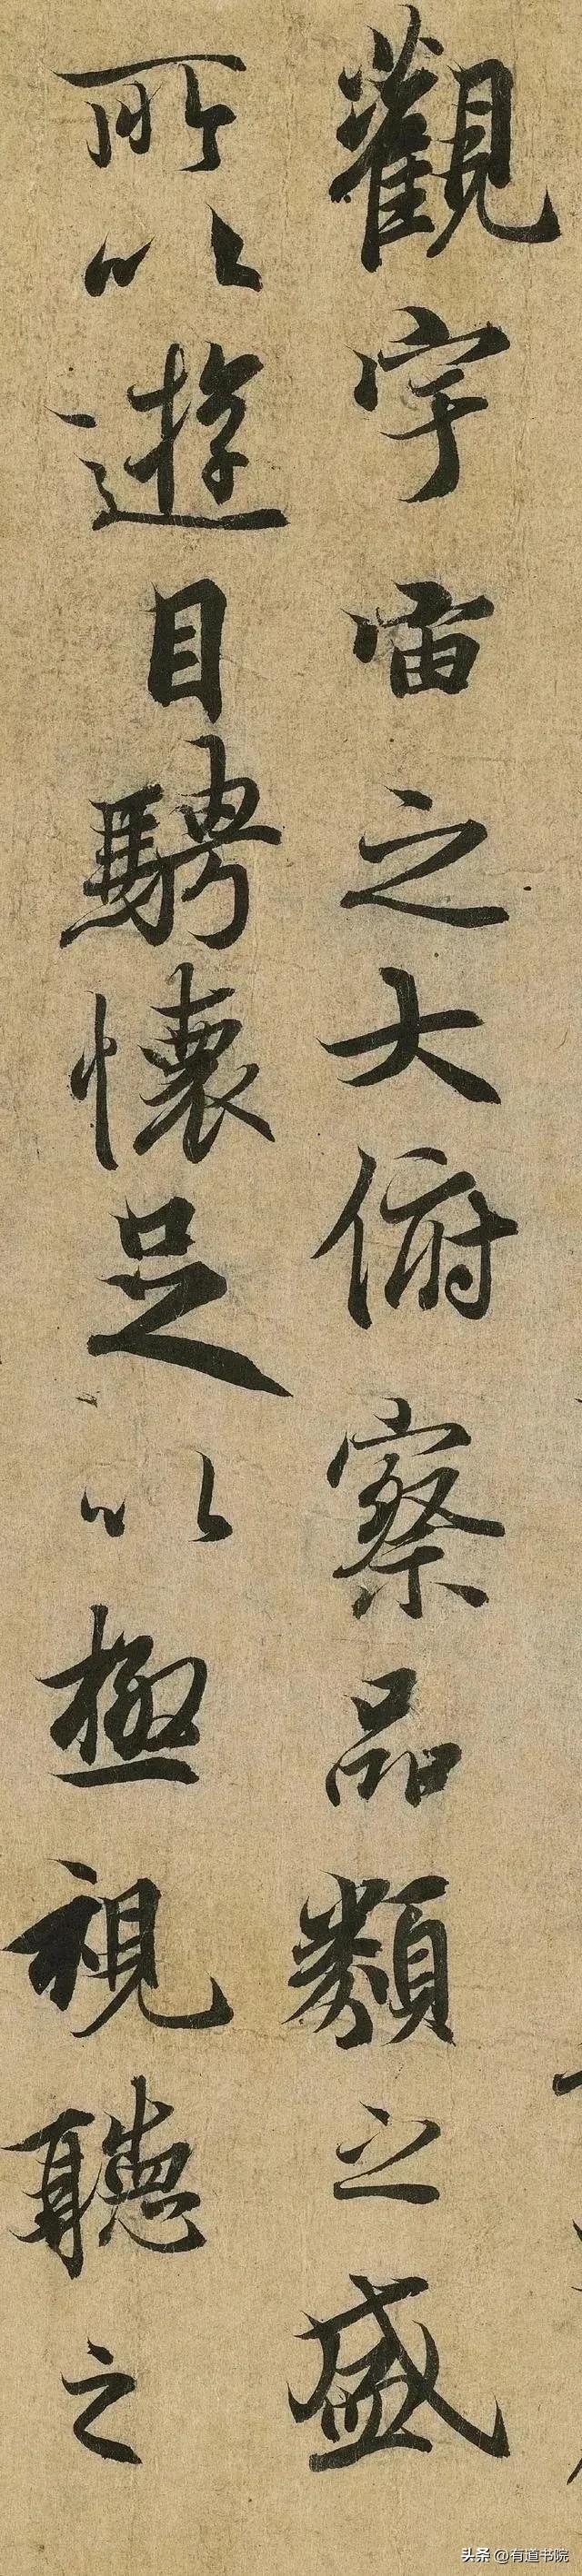 觀宇宙之大俯察品類之盛
所以遊目騁懷足以極視聽之
头条 @有道书院